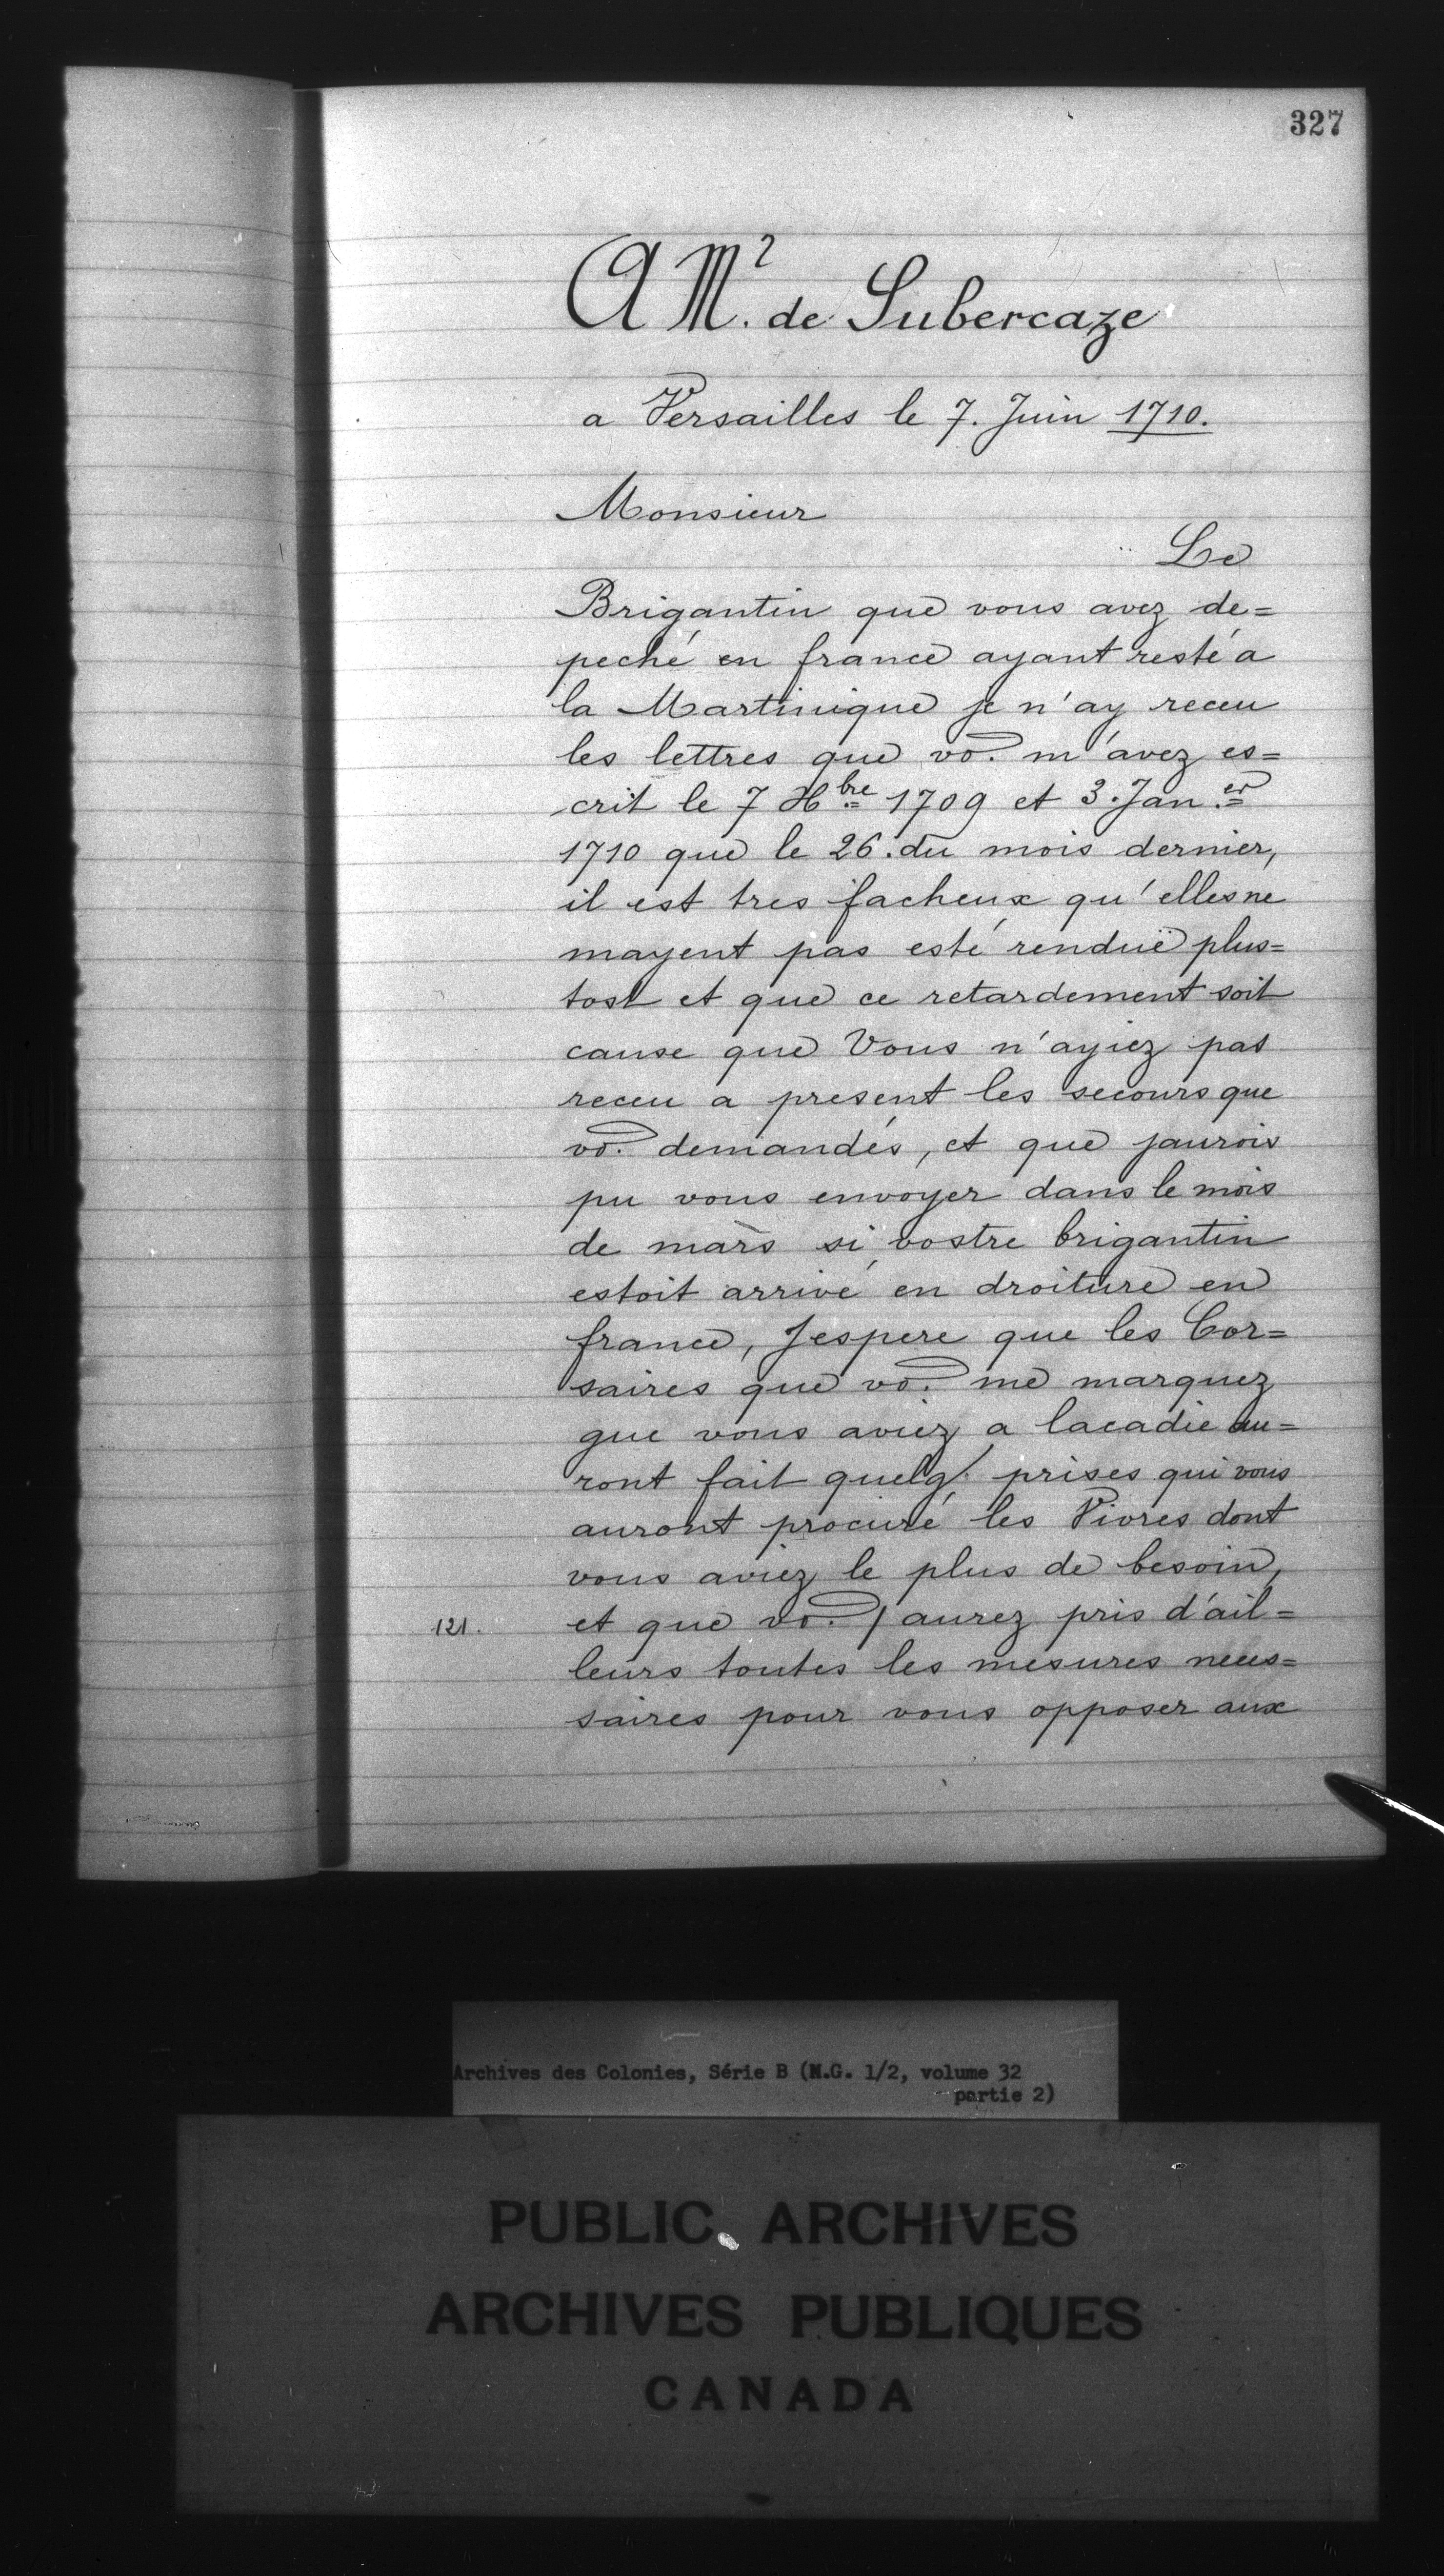 327
A Mr. de Subercaze
a Versailles le 7. Juin 1710.
Monsieur
Le
Brigantin que vous avez de=
peché en france ayant resté a
la Martinique je n'ay receu
les lettres que vo. m'avez es=
crit le 7 Xbre 1709 et 3. Janer
1710 que le 26. du mois dernier,
il est tres facheux qu'elles ne
mayent pas esté renduë plus=
tost et que ce retardement soit
cause que Vous n'ayiez pas
receu a present les secours que
vo. demandés, et que jaurois
pu vous envoyer dans le mois
de mars si vostre brigantin
estoit arrivé en droiture en
france, Jespere que les Cor=
saires que vo. me marquez
que vous aviez a lacadie au=
ront fait quelq. prises qui vous
auront procuré les Vivres dont
vous aviez le plus de besoin,
121. et que vo. / aurez pris d'ail=
leurs toutes les mesures neces=
saires pour vous opposer aux
Archives des Colonies, Série B (M.G. 1/2, volume 32
partie 2)
PUBLIC ARCHIVES
ARCHIVES PUBLIQUES
CANADA